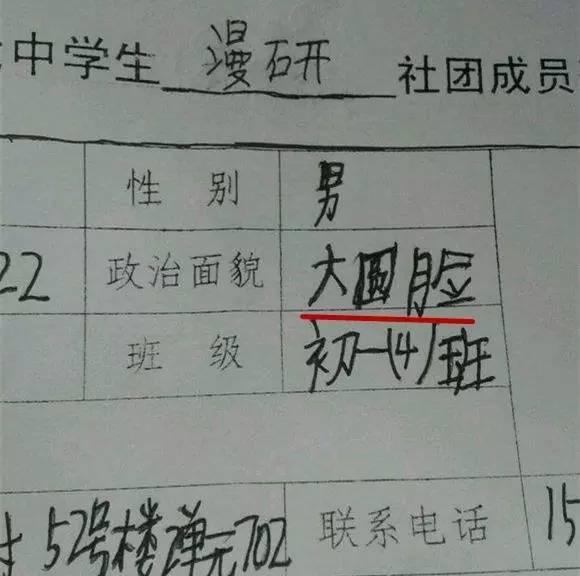 中学生 漫研 社团成员
性别 男
22 政治面貌 大圆脸
班级 初一(4)班
52号楼2单元702 联系电话 15